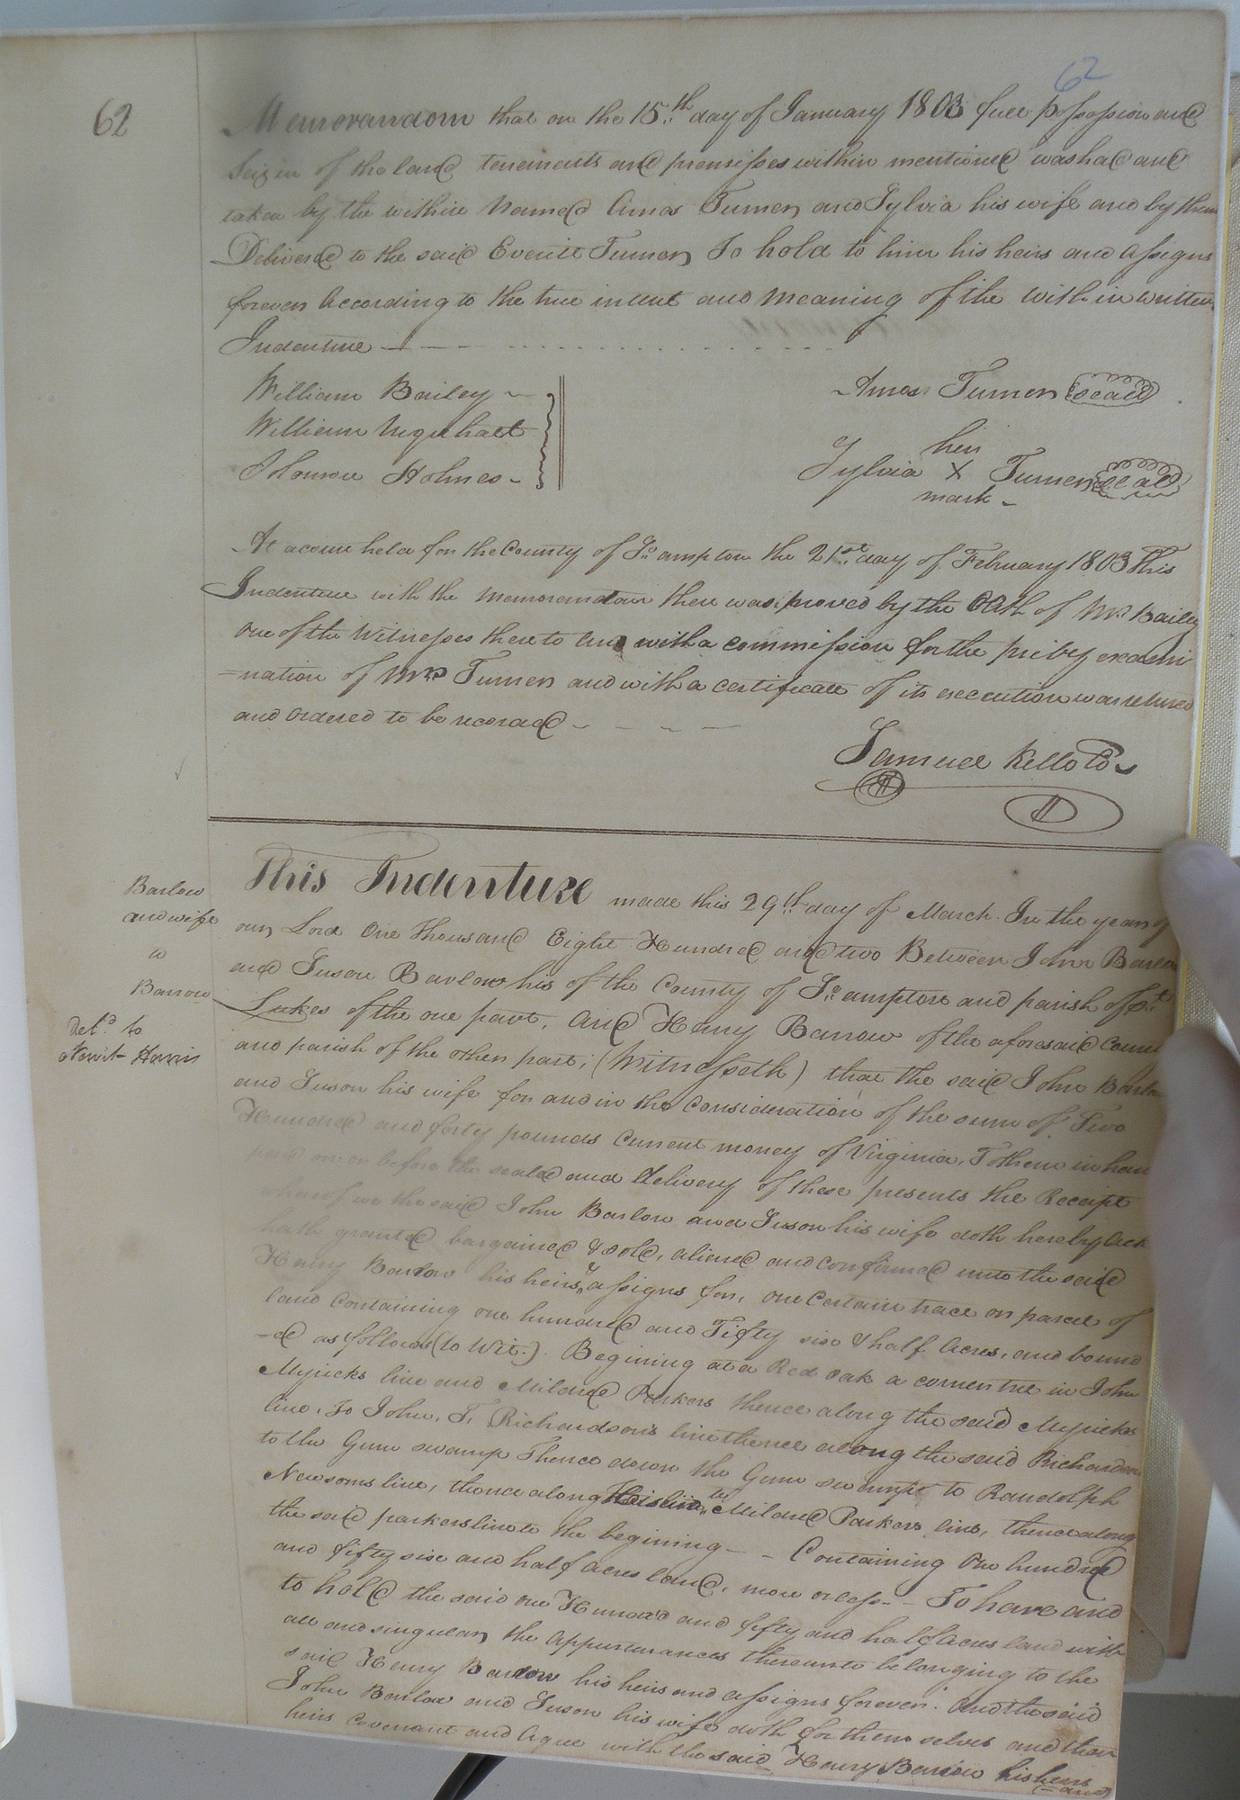 62
62
Memorandom that on the 15th day of January 1803 full possession and
Seizin of the land tenements and premisses within mentioned was had and
taken by the within Named Amos Turner and Sylvia his wife and by them
Delivered to the said Everitt Turner To hold to him his heirs and assigns
forever According to the true intent and meaning of the within written
Indenture
William Bailey
William Urquhart
Solomon Holmes
Amos Turner Seal
her
Sylvia X Turner Seal
mark
At a court held for the County of So ampton the 21st day of February 1803 This
Indenture with the memorandom there was proved by the Oath of Wm Bailey
one of the Witnesses thereto and with a commission for the priby exami
=nation of Mrs Turner and with a certificate of its execution was returned
and Ordered to be recorded
Samuel Kello Co
Barlow
and wife
to
Barrow
Deld to
Newit Harris
This Indenture made this 29th day of March In the year of
our Lord One Thousand Eight Hundred and two Between John Barlow
and Suson Barlow his of the County of So ampton and parish of St
Lukes of the one part, and Henry Barrow of the aforesaid County
and parish of the other part; (Witnesseth) that the said John Barlow
and Suson his wife for and in the consideration of the sum of Two
Hundred and forty pounds Current money of Virginia, To them in han
paid on or before the sealed and delivery of these presents the Receipt
whereof we the said John Barlow and Suson his wife doth hereby ack
hath granted bargained & sold, aliened and confirmed unto the said
Henry Barrow his heirs & assigns for, one Certain tract or parcel of
land Containing one hundred and Fifty six & half Acres, and bound
-ed as follows (to Wit:) Begining at a Red oak a corner tree in John
Myricks line and Mildred Parkers thence along the said Myricks
line, To John, T, Richardson's line thence along the said Richardsons
to the Gum swamp Thence down the Gum swamp to Randolph
Newsoms line, thence along his line to Mildred Parkers line, thence along
the said parkers line to the begining - - Containing One hundred
and fifty six and half acres land, more or less - To have and
to hold the said one Hundred and fifty and half acres land with
all and singular, the appurtenances thereunto belonging to the
said Henry Barrow his heirs and assigns forever. And the said
John Barlow and Suson his wife doth for themselves and their
heirs Covenant and Agree with the said Henry Barrow his heirs
(= and)